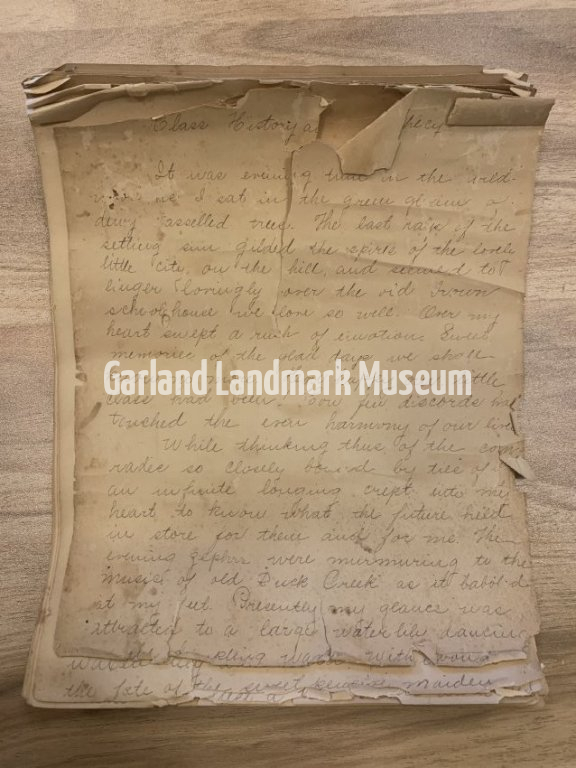 Class History a hecy
It was evening time in the wild
as I sat in the green gloom of
dewy tasselled trees. The last rays of the
setting sun gilded the spires of the lovely
little city, on the hill, and seemed to
linger lovingly over the old brown
schoolhouse we love so well. Over my
heart swept a rush of emotion. Sweet
memories of the glad days we shall
Garland Landmark Museum
class had been. few discords had
touched the even harmony of our live
While thinking thus of the com
rades so closely bound by ties of
an infinite longing crept into my
heart to know what the future held
in store for them and for me. The
evening zephrs were murmuring to the
music of old Duck Creek as it babbl'd
at my feet. Presently my glance was
attracted to a large water lily dancing
the fate of the sweet maiden